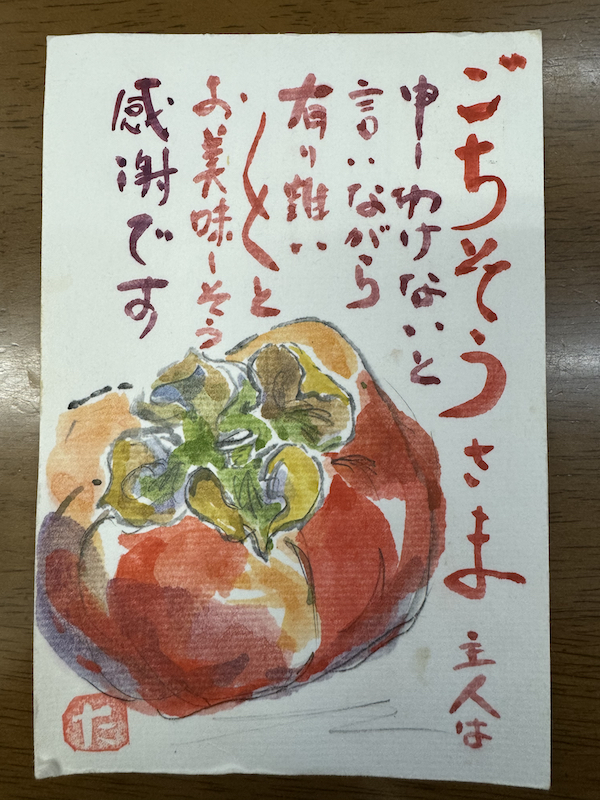 ごちそうさま 主人は
申しわけないと
言いながら
有り難い
〳〵と
お美味しそう
感謝です
た